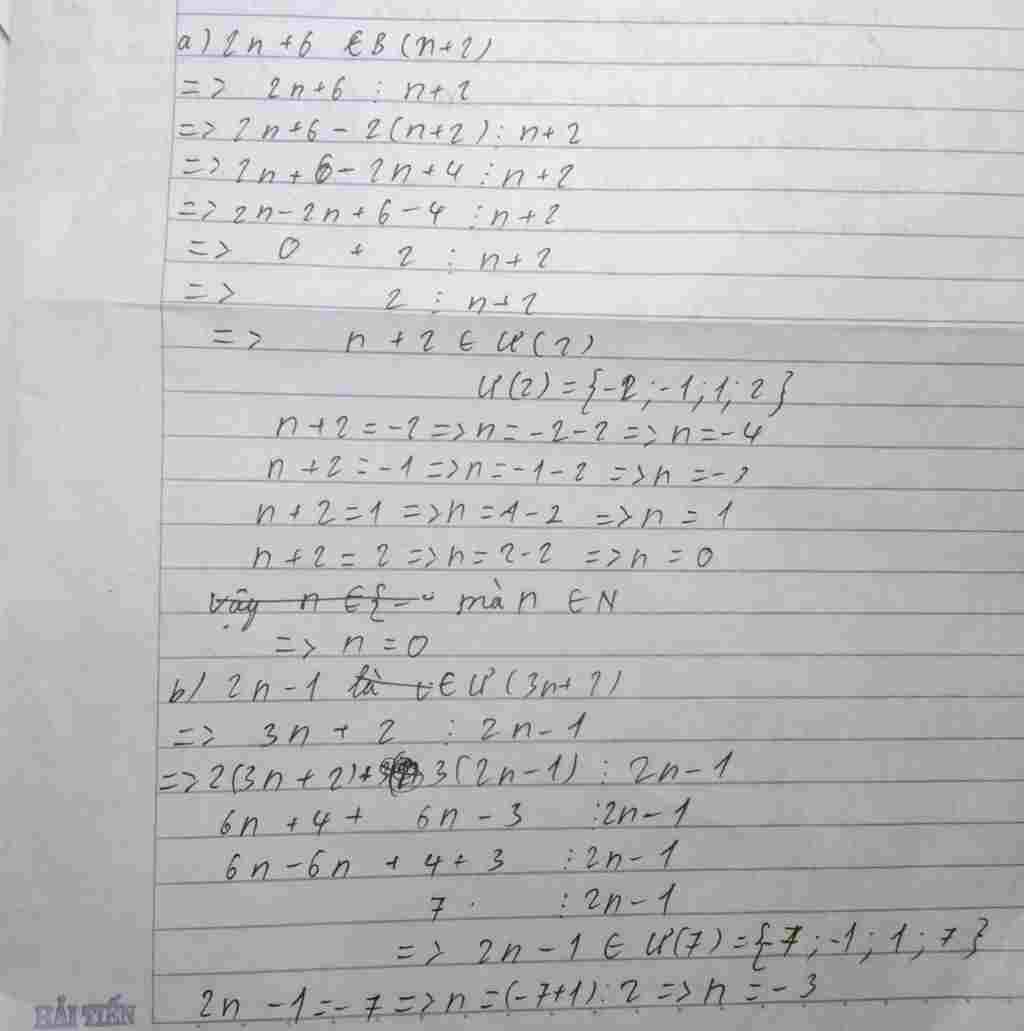 a) 2n+6 ∈ B(n+2)
=> 2n+6 ⋮ n+2
=> 2n+6-2(n+2) ⋮ n+2
=> 2n+6-2n+4 ⋮ n+2
=> 2n-2n+6-4 ⋮ n+2
=> 0 + 2 ⋮ n+2
=> 2 ⋮ n+2
=> n+2 ∈ Ư(2)
Ư(2)={-2;-1;1;2}
n+2=-2=>n=-2-2=>n=-4
n+2=-1=>n=-1-2 =>n=-3
n+2=1 =>n=1-2 =>n=1
n+2=2=>n=2-2 =>n=0
Vậy n ∈{- mà n ∈ N
=> n=0
b) 2n-1 là ∈ Ư(3n+2)
=> 3n+2 ⋮ 2n-1
=> 2(3n+2)+ 3(2n-1) ⋮ 2n-1
6n+4+ 6n-3 ⋮ 2n-1
6n-6n+4+3 ⋮ 2n-1
7 ⋮ 2n-1
=> 2n-1 ∈ Ư(7)={-7;-1;1;7}
2n-1=-7=>n=(-7+1):2=>n=-3
HẢI TIẾN